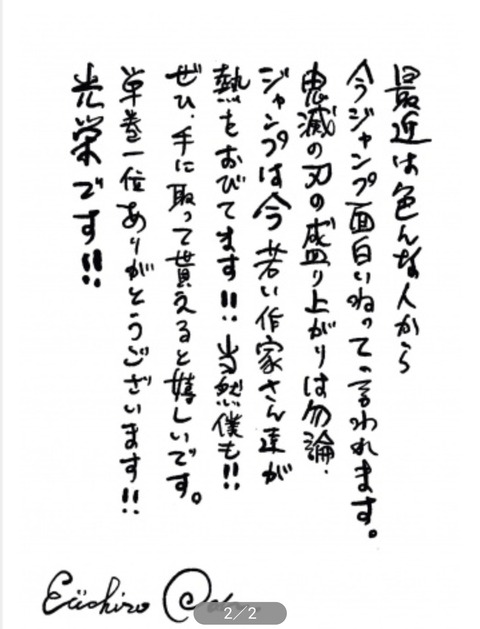 最近は色んな人から
今ジャンプ面白いねって言われます。
鬼滅の刃の盛り上がりは勿論、
ジャンプは今若い作家さん達が
熱をおびてます!! 当然僕も!!
ぜひ、手に取って貰えると嬉しいです。
単巻一位ありがとうございます!!
光栄です!!
Eiichiro Oda
2/2